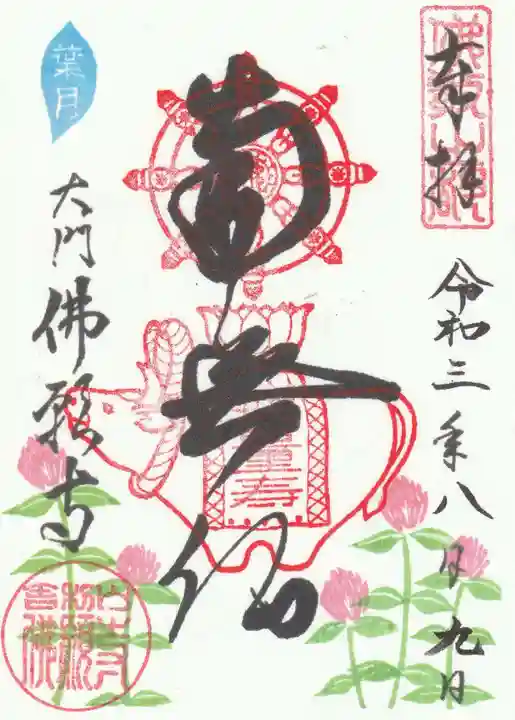 奉拝
令和三年八月九日
南無佛
無量寿
葉月
大門佛願寺